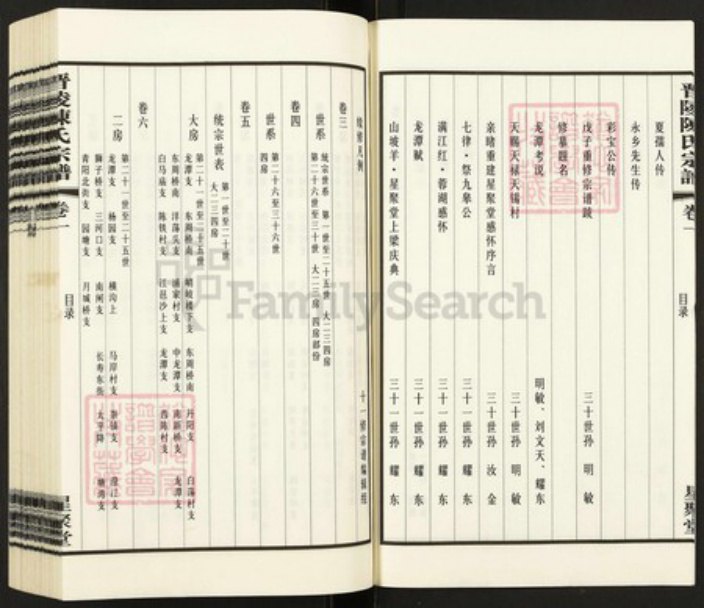 晋陵陳氏宗譜 卷一 目录 星聚堂
夏孺人传
永乡先生传
彩宝公传
戊子重修宗谱跋 三十世孙 明敏
修墓题名
龙潭考说 明敏、刘文天、耀东
天赐天禄天锡村 三十世孙 明敏
亲睹重建星聚堂感怀序言 三十世孙 汝金
七律·祭九皋公 三十一世孙 耀东
满江红·蓉湖感怀 三十一世孙 耀东
龙潭赋 三十一世孙 耀东
山坡羊·星聚堂上梁庆典 三十一世孙 耀东
续修凡例 十一修宗谱编辑组
卷三
世系 统宗世系 第一世至二十五世 大二三四房
第二十六世至三十世 大二三房 四房部份
卷四
世系 第二十六世至三十六世
四房
卷五
统宗世表 第一世至二十世
大二三四房
大房 第二十一世至二十五世
龙潭支 东周桥南 峭岐楼下支 东周桥南 丹阳支 白荡村支
东周桥南 洋荡头支 浦家村支 中龙潭支 南新桥支 龙潭支
白马庙支 陈铁村支 江邑沙上支 龙潭支 西陈村支
卷六
二房 第二十一世至二十五世
龙潭支 杨园支 横沟上 马岸村支 泰福支 澄江支
狮子桥支 三河口支 南闸支 长寿东街 太平降 塘湾支
青阳北街支 园塘支 月城桥支
晋陵陳氏宗譜 卷一 目录 星聚堂
FamilySearch